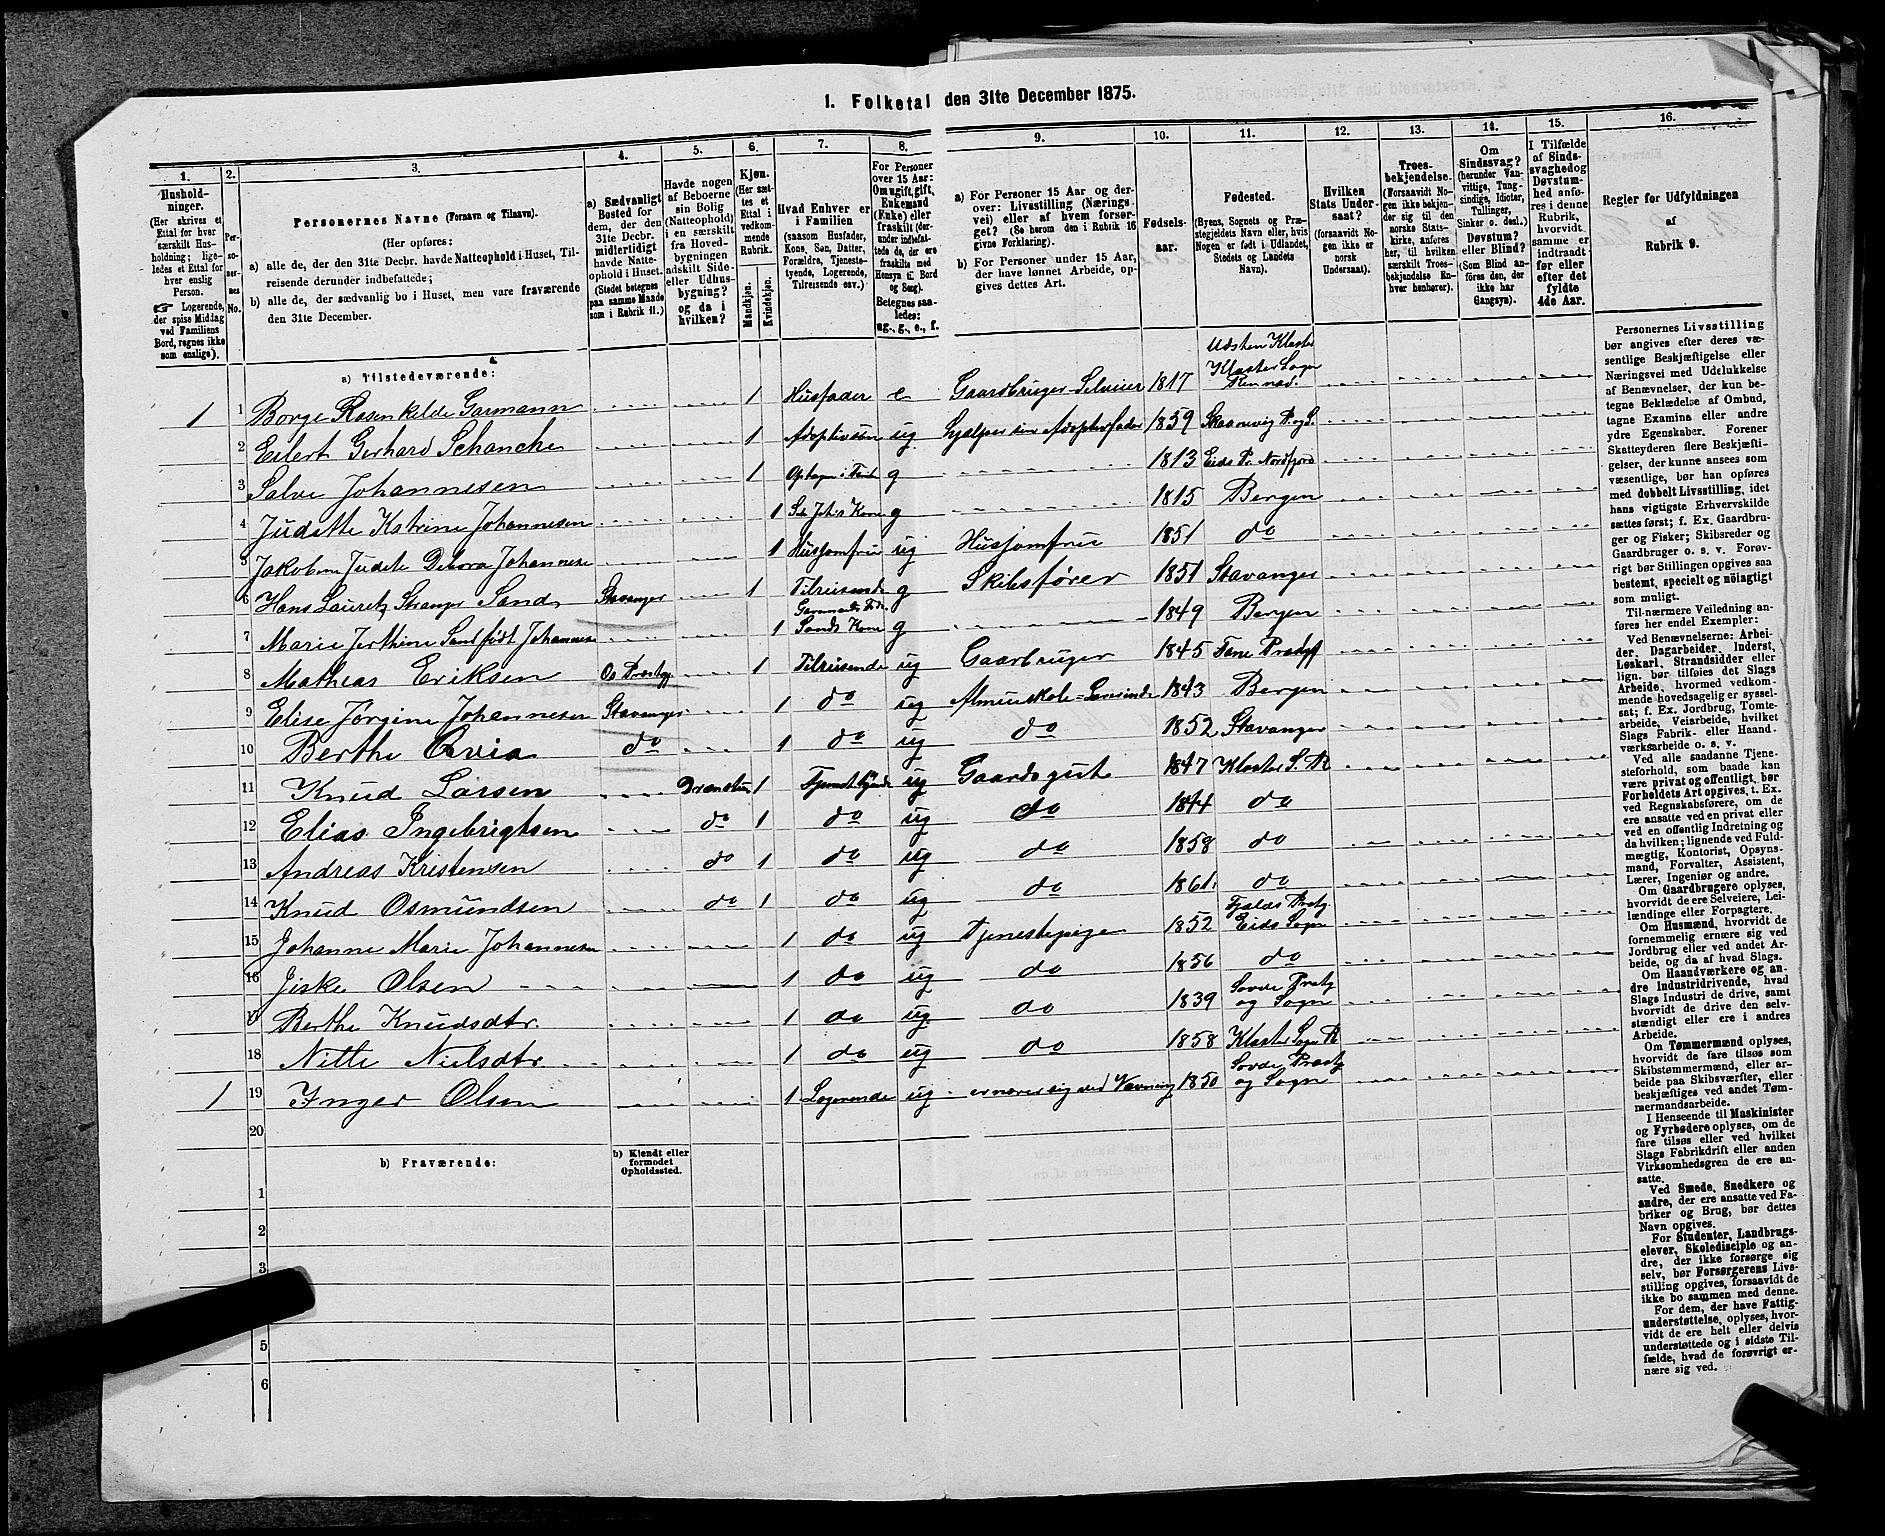 1. Folketal den 31te December 1875.
1.
2.
3.
4.
5.
6.
7.
8.
9.
10.
11.
12.
13.
14.
15.
16.
Hushold-
ninger.
(Her skrives et
Ettal for hver
særskilt Hus-
holdning; lige-
ledes et Ettal for
hver enslig
Person.
☞ Logerende,
der spise Middag
ved Familiens
Bord, regnes ikke
som enslige).
Per-
so-
ner-
nes
No.
Personernes Navne (Fornavn og Tilnavn).
(Her opføres:
a) alle de, der den 31te Decbr. havde Natteophold i Huset, Til-
reisende derunder indbefattede;
b) alle de, der sædvanlig bo i Huset, men vare fraværende
den 31te December.
a) Sædvanligt
Bosted for
dem, der den
31te Decbr.
midlertidigt
havde Natte-
ophold i Huset.
(Stedet betegnes
paa samme Maade
som i Rubrik 11.)
Havde nogen
af Beboerne
sin Bolig
(Natteophold)
i en særskilt
fra Hoved-
bygningen
adskilt Side-
eller Udhus-
bygning?
og da i
hvilken?
Kjøn.
(Her sæt-
tes et
Ettal i
vedkom-
mende
Rubrik.
Mandkjøn.
Kvindekjøn.
Hvad Enhver er
i Familien
(saasom Husfader,
Kone, Søn, Datter,
Forældre, Tjeneste-
tyende, Logerende,
Tilreisende osv.)
For Personer
over 15 Aar:
Om ugift, gift,
Enkemand
(Enke) eller
fraskilt (der-
under indbefat-
tede de, der ere
fraskilte med
Hensyn til Bord
og Seng).
Betegnes saa-
ledes:
ug., g., e., f.
a) For Personer 15 Aar og der-
over: Livsstilling (Nærings-
vei) eller af hvem forsør-
get? (Se herom den i Rubrik 16
givne Forklaring).
b) For Personer under 15 Aar,
der have lønnet Arbeide, op-
gives dettes Art.
Fødsels-
aar.
Fødested.
(Byens, Sognets og Præ-
stegjeldets Navn, eller hvis
Nogen er født i Udlandet,
Stedets og Landets
Navn).
Hvilken
Stats Under-
saat?
(forsaavidt No-
gen ikke er
norsk
Undersaat).
Troes-
bekjendelse.
(Forsaavidt No-
gen ikke bekjen-
der sig til den
norske Stats-
kirke, anføres
her, til hvilken
særskilt Troes-
bekjendelse En-
hver henhører).
Om
Sindssvag?
(herunder Van-
vittige, Tung-
sindige, Idioter,
Tullinger,
Sinker o. desl.)
Døvstum?
eller Blind?
(Som Blind an-
føres den, der
ikke har
Gangsyn).
I Tilfælde
af Sinds-
svaghed og
Døvstum-
hed anfø-
res i denne
Rubrik,
hvorvidt
samme er
indtraadt
før eller
efter det
fyldte
4de Aar.
Regler for Udfyldningen
af
Rubrik 9.
a) Tilstedeværende:
1 1 Børge Rosenkilde Garmann 1 Husfader e Gaardbruger Selveier 1817 Udsten Kloster Kloster Sogn Rennesø.
2 Eilert Gerhard Schanche 1 Adoptivsøn ug Hjælper sin Adoptivfader 1859 Skaanevig P. og S.
3 Salve Johannesen 1 g 1813 Eids Pr. Nordfjord
4 Judithe Katrine Johannesen 1 Kone g 1815 Bergen
5 Jakobine Judite Debora Johannesen 1 Husjomfru ug Husjomfru 1851 do
6 Hans Lauretz Stranger Sand Stavanger 1 Tilreisende g Skibsfører 1851 Stavanger
7 Marie Sand født Johannesen 1 Sands Kone g 1849 Bergen
8 Mathias Eriksen 1 Tilreisende ug Gaarbruger 1845
9 Elise Jørgine Johannesen Stavanger 1 do ug 1843 Bergen
10 Berthe do 1 do ug do 1852 Stavanger
11 Knud Larsen 1 Tjenestetyende ug Gaardsgut 1847 Kloster S. R
12 Elias Ingebrigtsen do 1 do ug do 1844 do
13 Andreas Kristensen do 1 do ug do 1858 do
14 Knud Osmundsen do 1 do ug do 1861 do
15 Johanne Marie Johannesen 1 do ug Tjenestepige 1852 Fjalds Prstg. Eids Sogn
16 Jiske Olsen 1 do ug do 1856 do
17 Berthe Knudsdtr. 1 do ug do 1839 Sovde Prstg og Sogn
18 Nille Nielsdtr 1 do ug do 1858 Kloster Sogn R
1 19 Inger Olsen 1 Logerende ug ernærer sig ved Vævning 1850 Sovde Præstg og Sogn
20
b) Fraværende:
b) Kjendt eller
formodet
Opholdssted.
1
2
3
5
6
Personernes Livsstilling
bør angives efter deres væ-
sentlige Beskjæftigelse eller
Næringsvei med Udelukkelse
af Benævnelser, der kun be-
tegne Beklædelse af Ombud,
tagne Examina eller andre
ydre Egenskaber. Forener
Skatteyderen flere Beskjæfti-
gelser, der kunne ansees som
væsentlige, bør han opføres
med dobbelt Livsstilling, idet
hans vigtigste Erhvervskilde
sættes først; f. Ex. Gaardbru-
ger og Fisker; Skibsreder og
Gaardbruger o. s. v. Forøv-
rigt bør Stillingen opgives saa
bestemt, specielt og nöiagtigt
som muligt.
Til nærmere Veiledning an-
føres her endel Exempler:
Ved Benævnelserne: Arbei-
der, Dagarbeider, Inderst,
Løskarl, Strandsidder eller
lign. bør tilføies det Slags
Arbeide, hvormed vedkom-
mende hovedsagelig er syssel-
sat; f. Ex. Jordbrug, Tomte-
arbeide, Veiarbeide, hvilket
Slags Fabrik- eller Haand-
værksarbeide o. s. v.
Ved alle saadanne Tjene-
steforhold, som baade kan
være privat og offentligt, bør
Forholdets Art opgives, t. Ex.
ved Regnskabsførere, om de
ere ansatte ved en privat eller
ved en offentlig Indretning og
da hvilken; lignende ved Fuld-
mægtig, Kontorist, Opsyns-
mand, Forvalter, Assistent,
Lærer, Ingeniør og andre.
Om Gaardbrugere oplyses,
hvorvidt de ere Selveiere, Lei-
lændinge eller Forpagtere.
Om Husmænd, hvorvidt de
fornemmelig ernære sig ved
Jordbrug eller ved andet Ar-
beide, og da af hvad Slags.
Om Haandværkere og an-
dre Industridrivende, hvad
Slags Industri de drive, samt
hvorvidt de drive den selv-
stændigt eller ere i andres
Arbeide.
Om Tømmermænd oplyses,
hvorvidt de fare tilsøs som
Skibstømmermænd, eller ar-
beide paa Skibsværfter, eller
beskjæftiges ved andet Tøm-
mermandsarbeide.
I Henseende til Maskinister
og Fyrbødere oplyses, om de
fare tilsøs eller ved hvilket
Slags Fabrikdrift eller anden
Virksomhedsgren de ere an-
satte.
Ved Smede, Snedkere og
andre, der ere ansatte ved Fa-
briker og Brug, bør dettes
Navn opgives.
For Studenter, Landbrugs-
elever, Skoledisciple og an-
dre, der ikke forsørge sig
selv, bør Forsørgerens Livs-
stilling opgives, forsaavidt de
ikke bo sammen med denne.
For dem, der have Fattig-
understøttelse, oplyses, hvor-
vidt de ere helt eller delvis
understøttede og i sidste Til-
fælde, hvad de forøvrigt er-
nære sig ved.